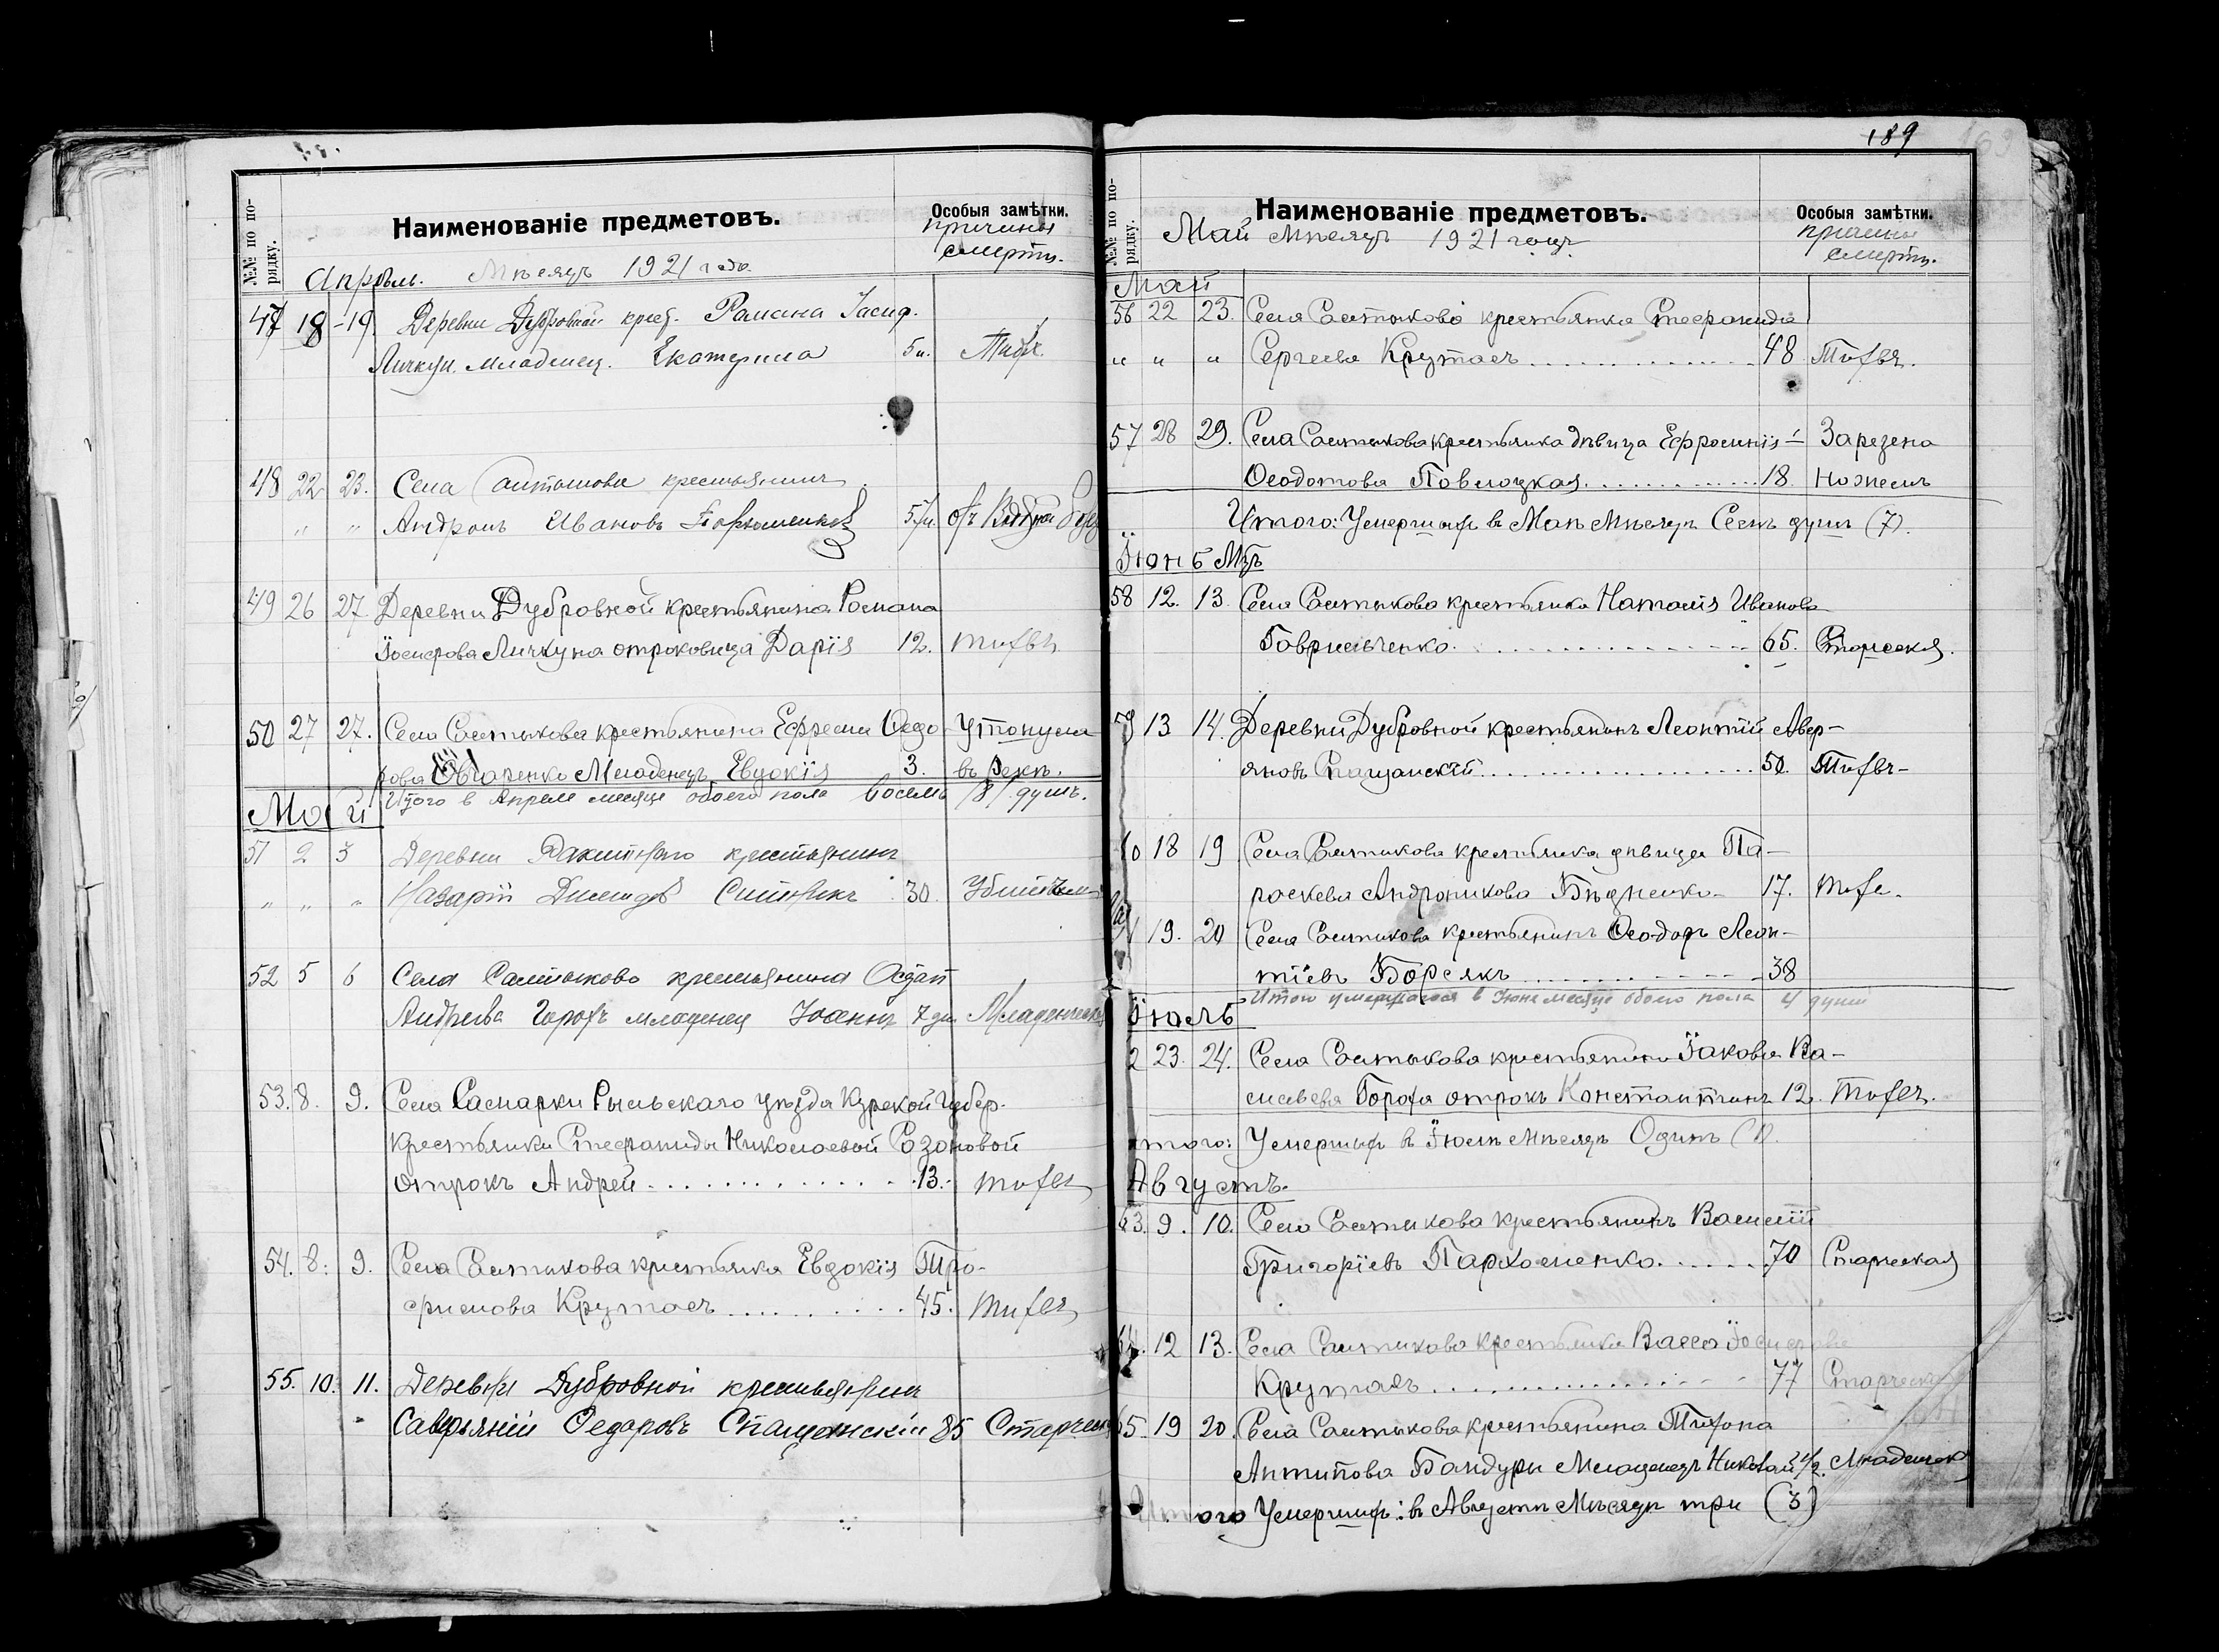 №№ по по-
рядку.
Наименованіе предметовъ.
Особыя замѣтки.
причины
смерти.
Апрѣль. Мѣсяцъ 1921 года
47 18-19 Деревни Дубровной крест. Романа Іосиф.
Личкун. младенец. Екатерина 5
48 22 23. Села Салтыкова крестьянинъ
" " Андронъ Ивановъ
49 26 27. Деревни Дубровной крестьянина Романа
Іосифова Личкуна отроковица Дарія 12. Тифъ
50 27 27. Села Салтыкова крестьянина Ефрема Ѳедо- Утонула
рова Овчаренко Младенецъ Евдокія 3. въ рекѣ.
Итого в Апреле месяце обоего пола восемь /8/ душъ.
Май
51 2 3 Деревни крестьянинъ
" " " Назарій 30.
52 5 6 Села Салтыково крестьянина
Андреева Горохъ младенец Іоаннъ 7 дн. Младенческ
53. 8. 9. Села Саспарки Рыльскаго уѣзда Курской Губер.
крестьянки Стефаниды Николаевой Созоновой
отрокъ Андрей 13. Тифъ
54. 8. 9. Села Салтыкова крестьянка Евдокія Тро-
фимова Крутась 45. Тифъ
55. 10. 11. Деревни Дубровной крестьянинъ
Ѳедоровъ Спащанскій 85 Старческ
189
№№ по по-
рядку.
Наименованіе предметовъ.
Особыя замѣтки.
причины
смерти.
Май мѣсяцъ 1921 года
Май
56 22 23. Села Салтыкова крестьянка Стефанида
" " " Сергеева Крутась 48 Тифъ.
57 28 29. Села Салтыкова крестьянка дѣвица Ефросинія Зарезена
Ѳеодотова Повлоцкая 18. ножемъ
Итого: Умершихъ в Маѣ Мѣсяцѣ Семь душъ (7).
Іюнь Мцъ
58 12. 13. Села Салтыкова крестьянка Наталія Иванова
Гаврильченко 65. Старческая.
59 13 14. Деревни Дубровной крестьянинъ Леонтій Авер-
яновъ Спащанскій 50. Тифъ-
60 18 19 Села Салтыкова крестьянка дѣвица Па-
раскева Андроникова Бѣдненко- 17. Тифъ.
61 19. 20 Села Салтыкова крестьянинъ Ѳеодоръ Леон-
тіевъ Борсякъ 38
Итого умершихся в Іюне месяце обоего пола 4 души
Іюль
2 23. 24. Села Салтыкова крестьянина Іакова Ва-
сильева Гороха отрокъ Константинъ 12. Тифъ.
того: Умершихъ в Іюлѣ мѣсяцѣ Одинъ (1).
Августъ.
63. 9. 10. Села Салтыкова крестьянинъ Василій
Григоріевъ Пархоменко 70 Старческая
64. 12 13. Села Салтыкова крестьянка Васса Іосифова
Крутась 77 Старческая
65. 19 20. Села Салтыкова крестьянина Тихона
Антипова Бандури Младенецъ Николай 1/2. Младенческ
Итого Умершихъ: въ Августѣ Мѣсяцѣ три (3)